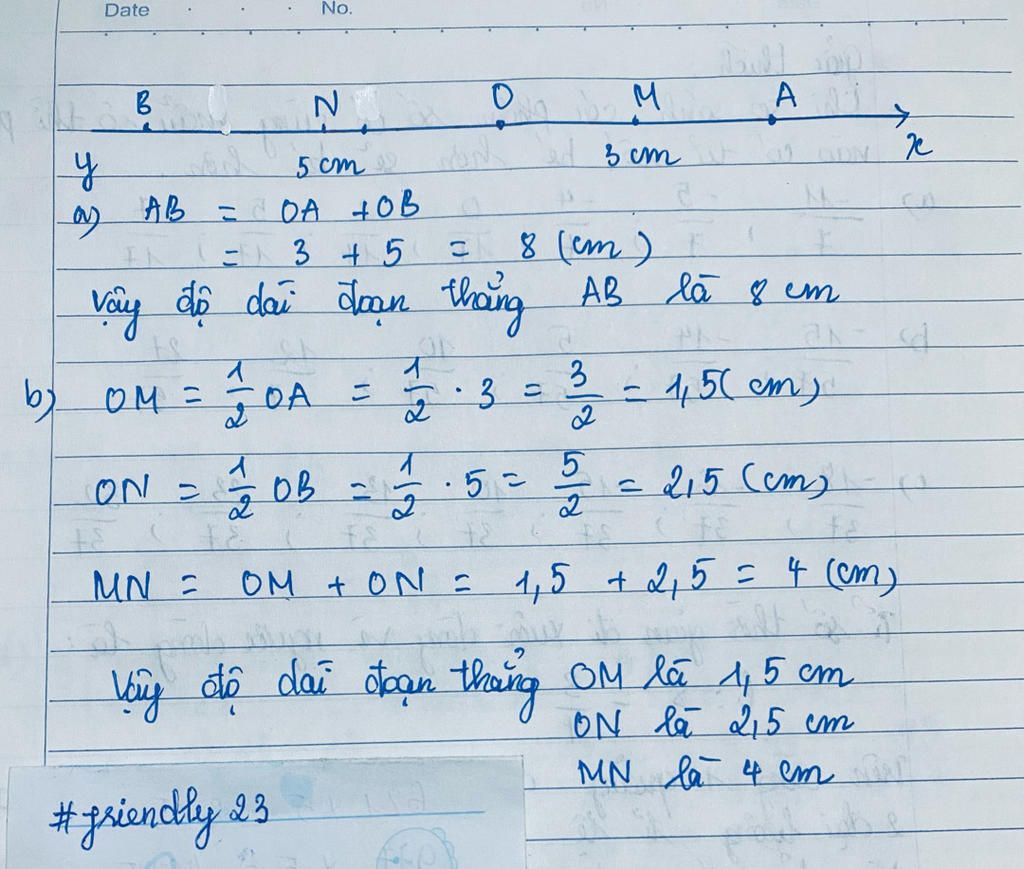 Date No.
B N O M A
y 5 cm 3 cm x
a) AB = OA + OB
= 3 + 5 = 8 (cm)
Vậy độ dài đoạn thẳng AB là 8 cm
b) OM = 1/2 OA = 1/2 . 3 = 3/2 = 1,5 (cm)
ON = 1/2 OB = 1/2 . 5 = 5/2 = 2,5 (cm)
MN = OM + ON = 1,5 + 2,5 = 4 (cm)
Vậy độ dài đoạn thẳng OM là 1,5 cm
ON là 2,5 cm
MN là 4 cm
#friendly 23